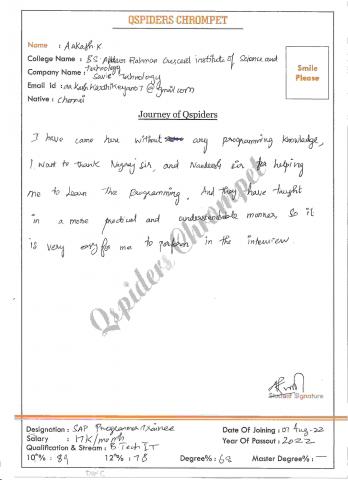 QSPIDERS CHROMPET
Name : Aakash.K
College Name : B.S. Abdur Rahman Crescent institute of Science and
technology
Company Name : technology
Email Id : @gmail.com
Native : Chennai
Smile
Please
Journey of Qspiders
I have came here without any programming knowledge,
I want to thank Nagraj sir, and Nandeesh sir for helping
me to learn the programming. And they have taught
in a more practical and understandable manner, so it
is very easy for me to perform in the interview.
Qspiders Chrompet
Student Signature
Designation : SAP Programmer Trainee
Salary : 17K/month
Qualification & Stream : B Tech IT
10th% : 89 12th% : 78
Date Of Joining : 01 Aug-22
Year Of Passout : 2022
Degree% : 68 Master Degree% : —